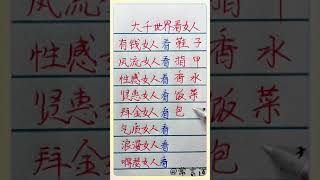 大千世界看女人
有钱女人看鞋子
风流女人看指甲
性感女人看香水
贤惠女人看饭菜
拜金女人看包
气质女人看
浪漫女人看
女人看